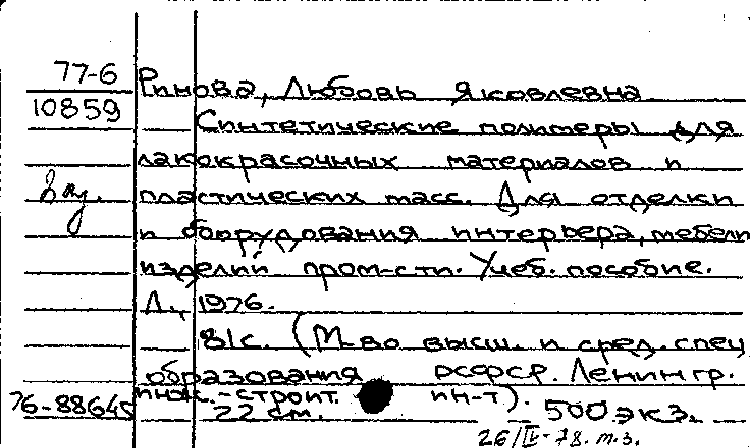 77-6
10859
Ринова, Любовь Яковлевна
Синтетические полимеры для
лакокрасочных материалов и
пластических масс. Для отделки
и оборудования интерьера, мебели
изделий пром-сти. Учеб. пособие.
Л., 1976.
81с. (М-во высш. и сред. спец
образования РСФСР. Ленингр.
инж.-строит. ин-т).
76-88645
22 см. 500 экз.
26/IV-78. т.з.